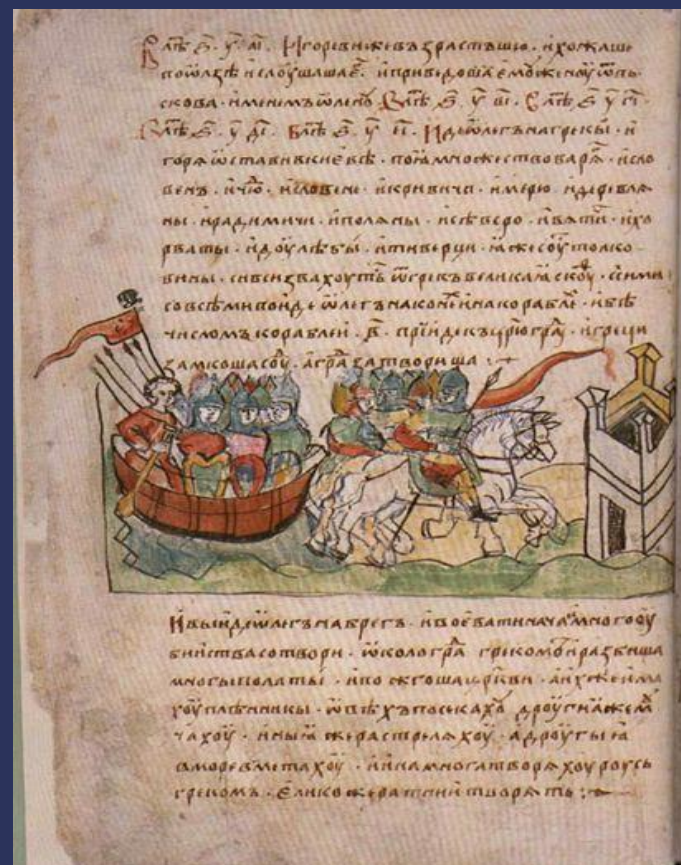 В лѣт҃ ҂ѕ҃ . у҃ . аі҃ . Игореви же възрастъшю . и хожаше
по ѡлзѣ и слоушаша е҃ . и приведоша емоу женоу ѿ пь
скова . именимъ ѡлено . В лѣт҃ ҂ѕ҃ . у҃ ві҃ . В лѣт҃ ҂ѕ҃ у҃ гі҃ .
В лѣт҃ ҂ѕ҃ . у҃ ді҃ . В лѣт҃ ҂ѕ҃ . у҃ еі҃ . Иде ѡлегъ на грекы . и
горѧ ѡстави в киевѣ . поѧ множество варѧ . и сло
венъ . и чю . и словене . и кривичи . и мерю . и деревлѧ
ны . и радимичи . и полѧны . и сѣверо . и вѧтичи . и хо
рваты . и доулѣбы . и тиверци . ꙗже соу толко
вины . си вси звахоуть ѿ грекъ великаꙗ скоуⷴ . с сими
со всѣми поиде ѡлегъ на конеⷯ и на кораблеⷯ . и бѣ
числомъ кораблеи . в҃ . прииде къ црюграⷣ . и греци
замкоша соуⷣ . а граⷣ затвориша :
И выиде ѡлегъ на брегъ . и воевати нача . и много оу
бииства сотвори . ѡколо граⷣ грекомъ . и разбиша
многы полаты . и пожгоша церкви . а иⷯ же има
хоу плѣнникы . ѡвѣхъ посѣкахоу дроугиа же мⷹ
чахоу . иныꙗ же растрелѧхоу . а дроугыꙗ
в море вметахоу . и ина многа творѧхоу роусь
грекомъ . елико же ратнии творѧть :